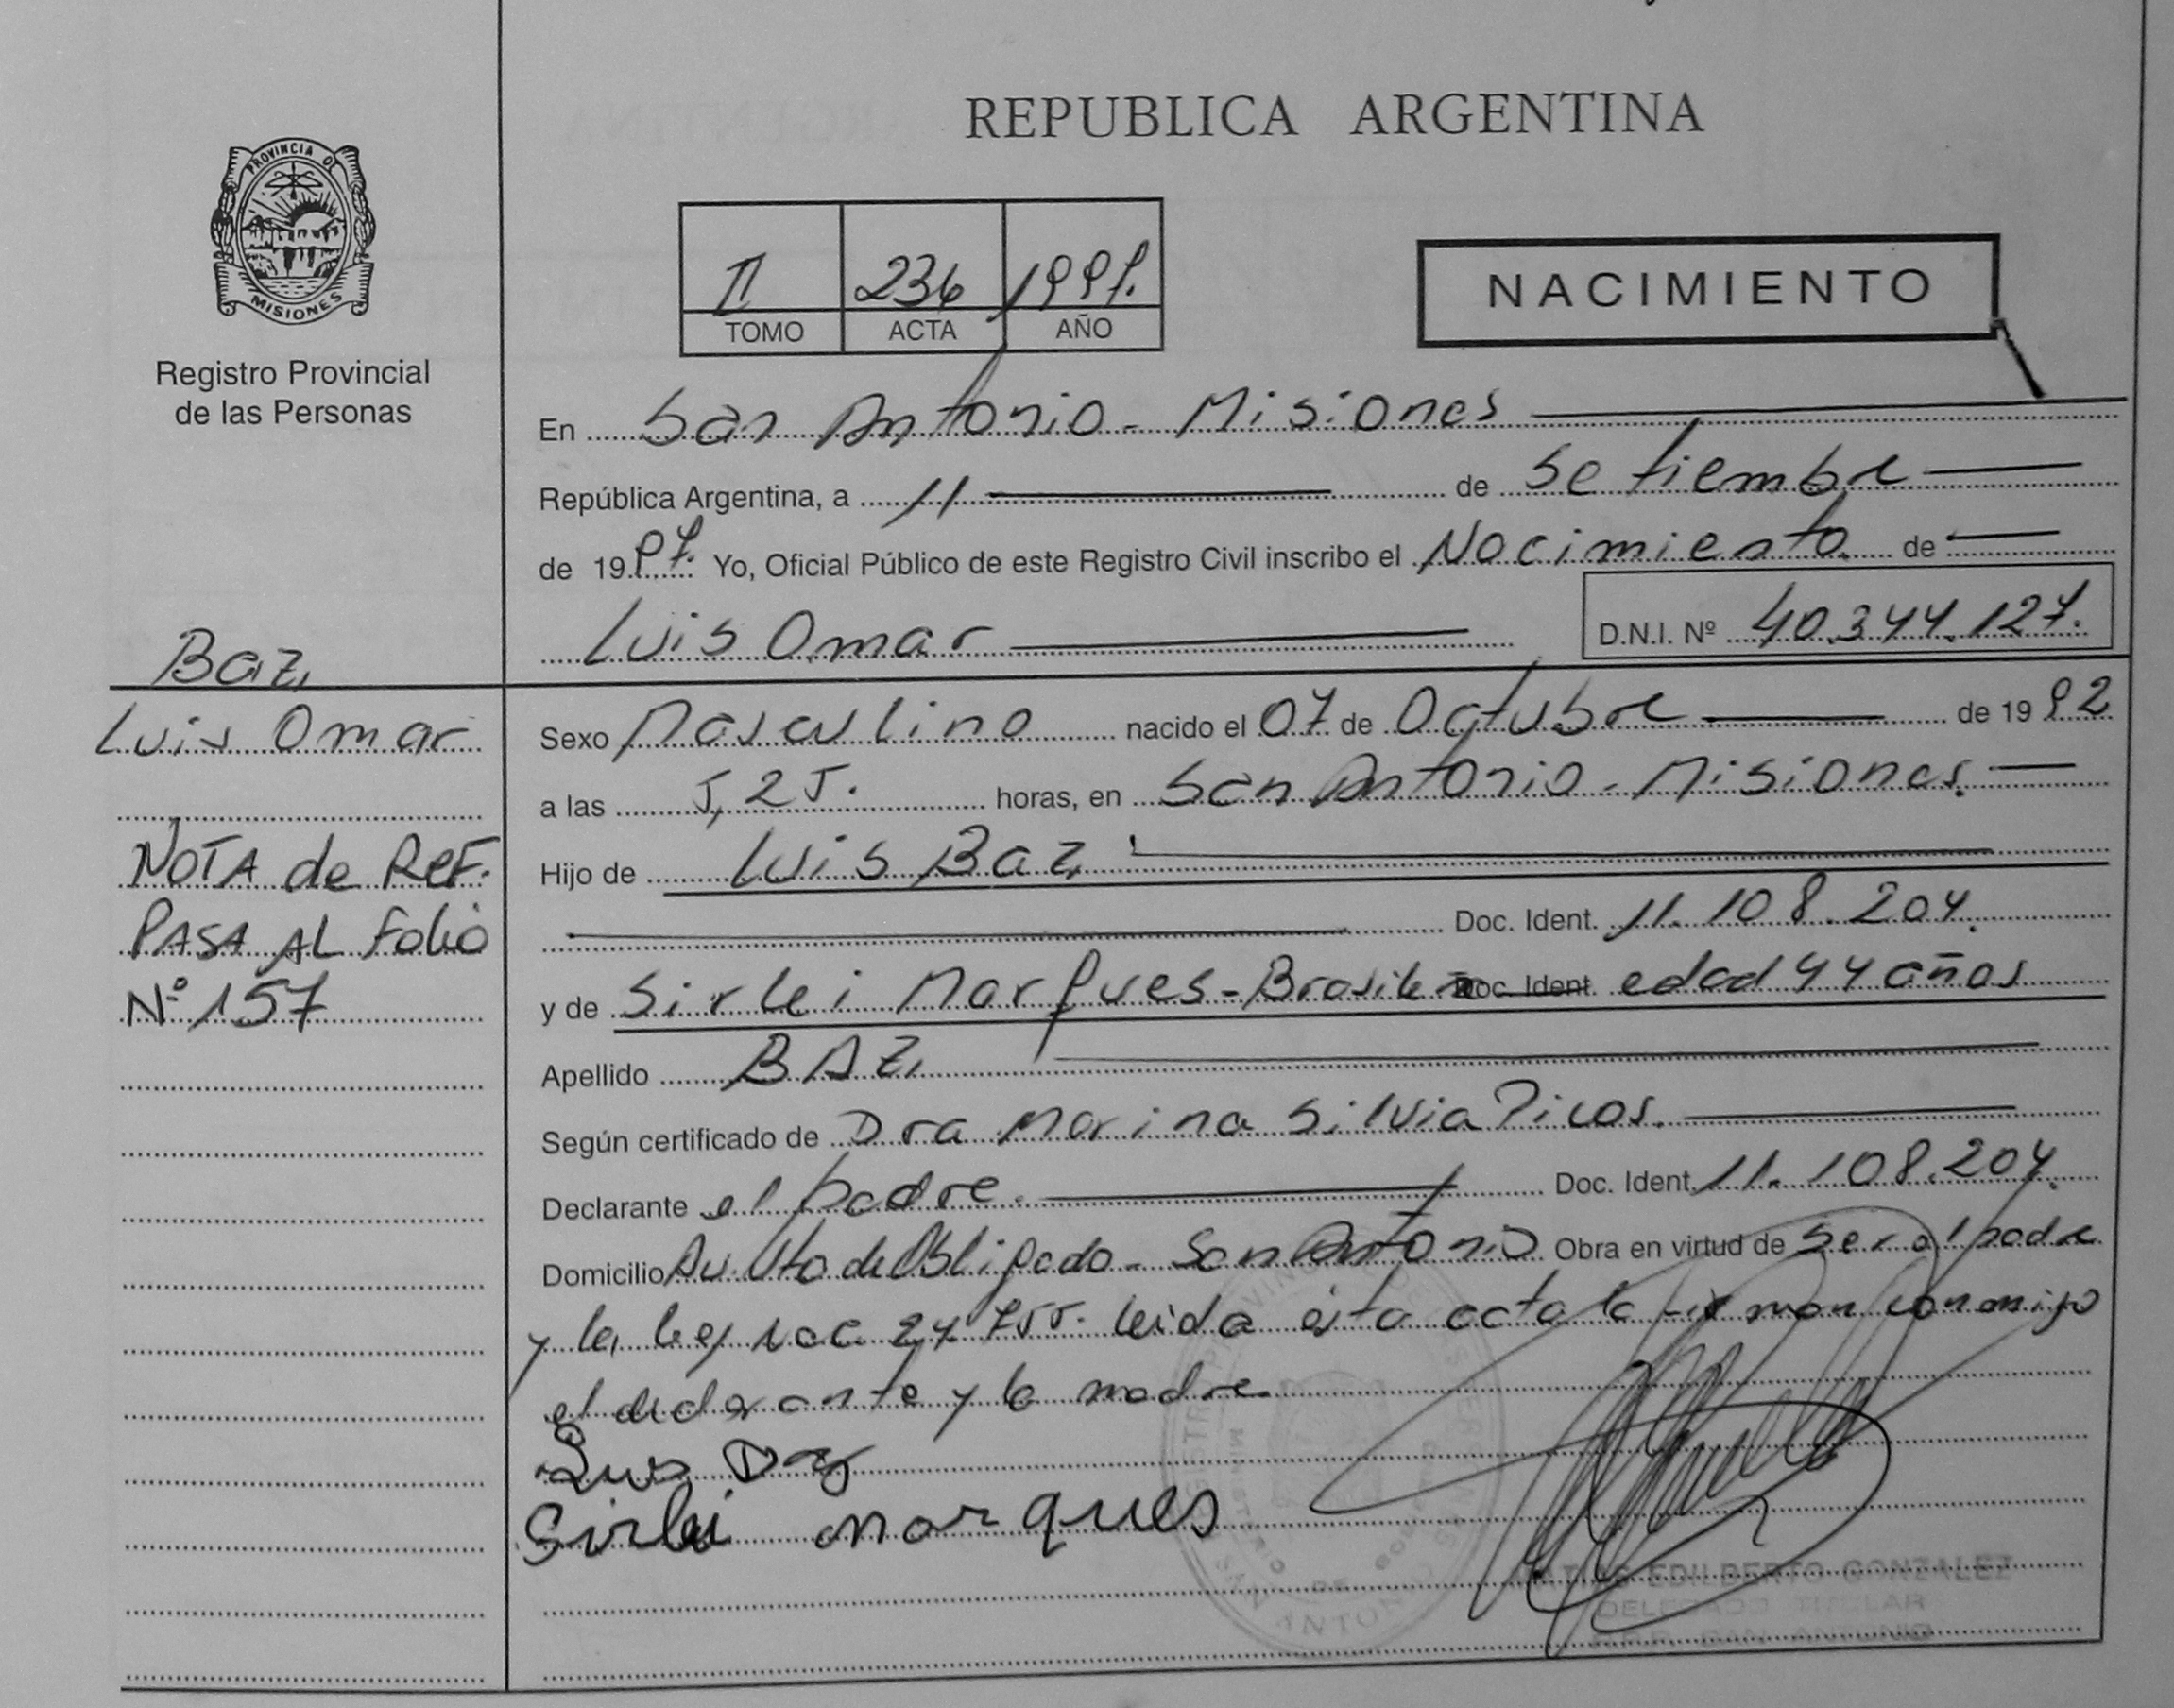 REPUBLICA ARGENTINA
PROVINCIA DE
MISIONES
Registro Provincial
de las Personas
II 236 1997.
TOMO ACTA AÑO
NACIMIENTO
En San Antonio - Misiones
República Argentina, a 11 de Setiembre
de 1997. Yo, Oficial Público de este Registro Civil inscribo el Nacimiento de
Luis Omar D.N.I. Nº 40.344.127.
Baz,
Luis Omar
NOTA de REF.
PASA AL Folio
Nº 157
Sexo Masculino nacido el 07 de Octubre de 1992
a las 5,25. horas, en San Antonio - Misiones.
Hijo de Luis Baz
Doc. Ident. 11.108.204.
y de Sirlei Marques - Brasileña Doc. Ident. edad 44 años
Apellido BAZ,
Según certificado de Dra Marina Silvia Picos.
Declarante el padre. Doc. Ident. 11.108.204.
Domicilio Av. Vta de Obligado - San Antonio Obra en virtud de ser el padre
y la ley nac 24755. leida esta acta la firman conmigo
el declarante y la madre.
Luis Baz
Sirlei Marques
EDILBERTO GONZALEZ
DELEGADO TITULAR
SAN ANTONIO